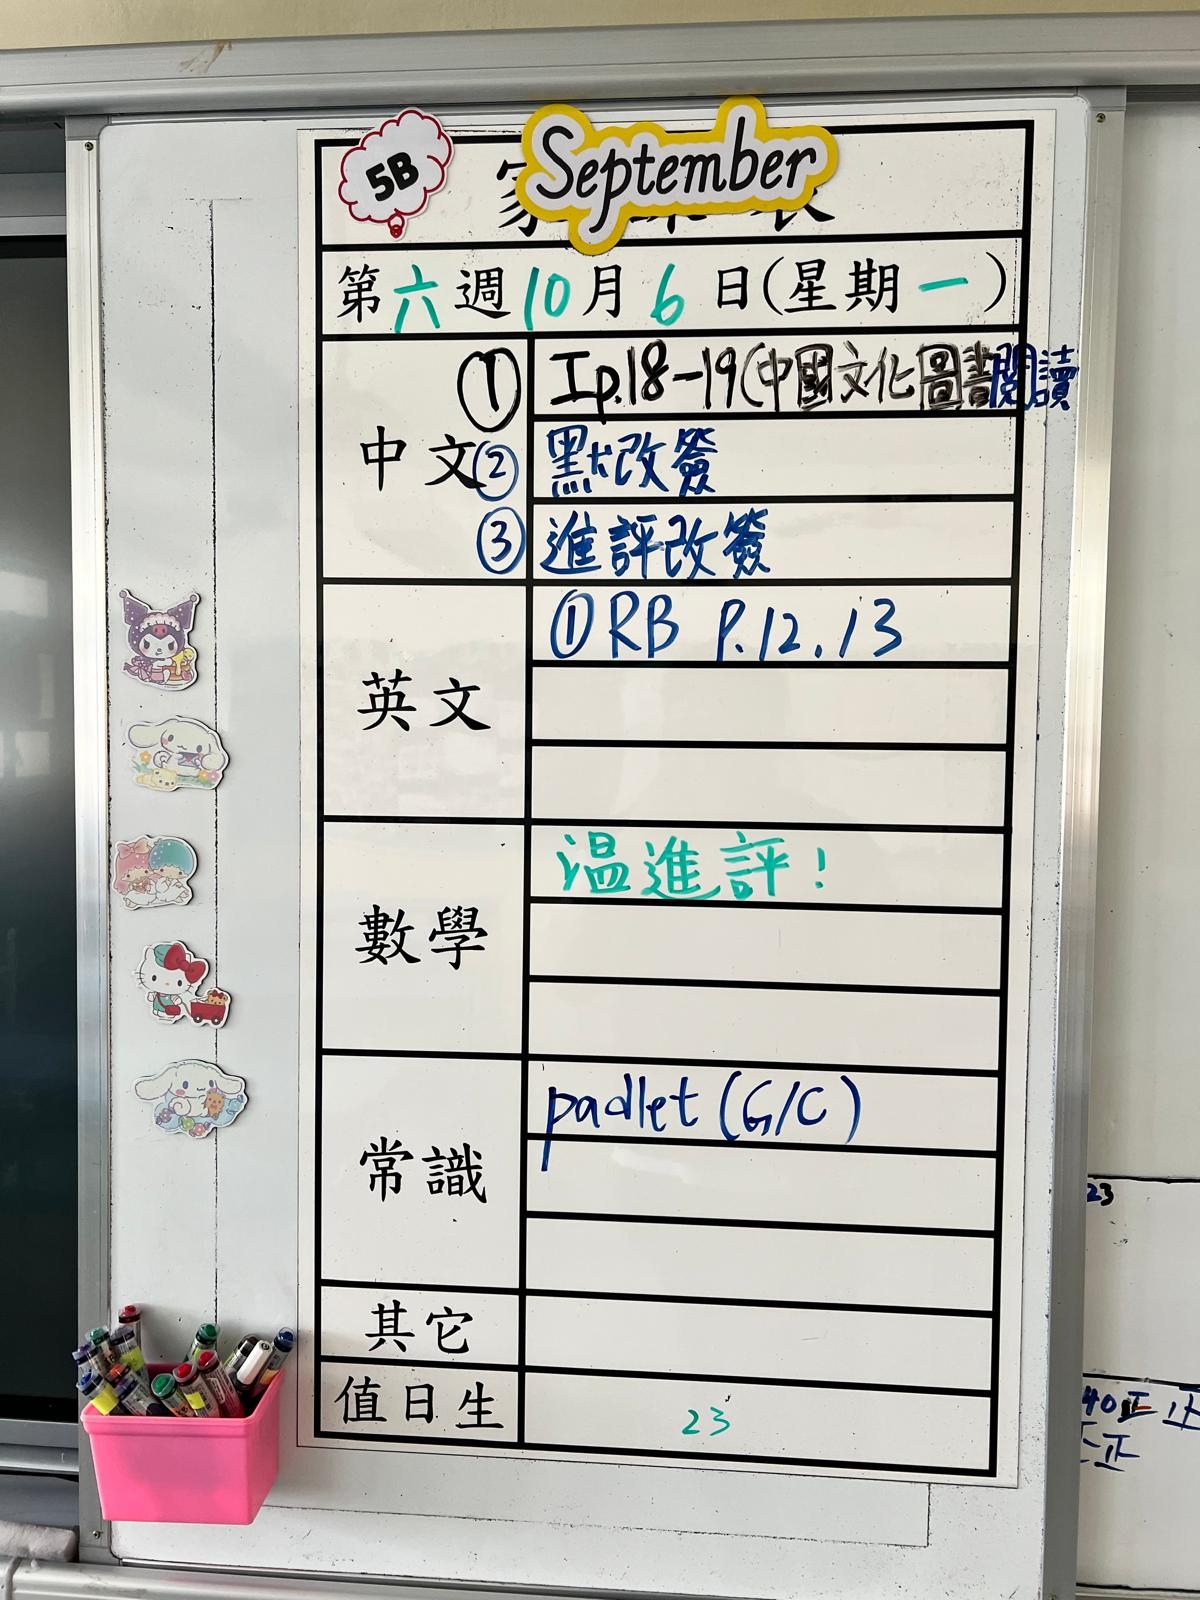 5B
September
家 表
第六週10月6日(星期一)
中文
① Ip.18-19(中國文化圖書閱讀
② 默改簽
③ 進評改簽
英文
① RB P.12.13
數學
温進評!
常識
padlet (G/C)
其它
值日生
23
23
40正正
正